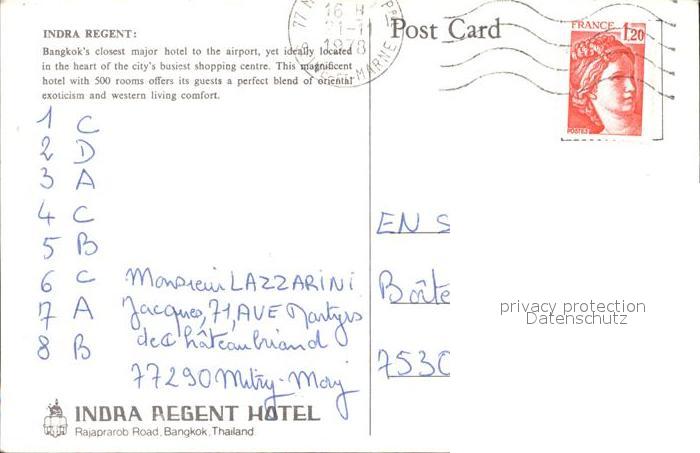 INDRA REGENT:
Bangkok's closest major hotel to the airport, yet ideally located
in the heart of the city's busiest shopping centre. This magnificent
hotel with 500 rooms offers its guests a perfect blend of oriental
exoticism and western living comfort.
1 C
2 D
3 A
4 C
5 B
6 C
7 A
8 B
Monsieur LAZZARINI
Jacques, 71, AVE Martyrs
de Châteaubriand
77290 Mitry-Mory
INDRA REGENT HOTEL
Rajaprarob Road, Bangkok, Thailand.
Post Card
77
16 H
1978
MARNE
FRANCE
1,20
POSTES
EN S
Boîte
7530
privacy protection
Datenschutz